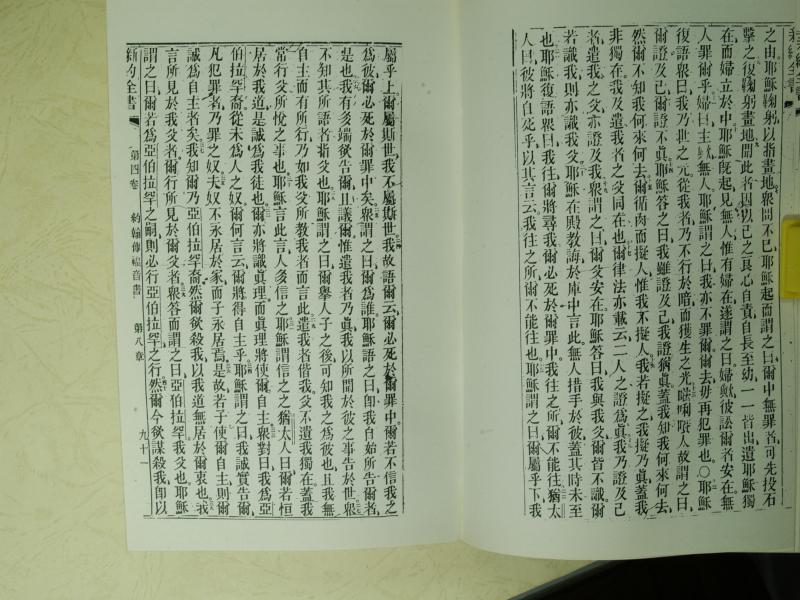 之由耶穌鞠躬以指畫地衆問不已耶穌起而謂之曰爾中無罪者可先投石
擊之復鞠躬畫地聞此者因以己之良心自責自長至幼一一皆出遺耶穌獨
在而婦立於中耶穌旣起見無人惟有婦在遂謂之曰婦歟彼訟爾者安在無
人罪爾乎婦曰主歟無人耶穌謂之曰我亦不罪爾爾去毋再犯罪也〇耶穌
復語衆曰我乃世之光從我者乃不行於暗而獲生之光𠵽唎㘔人故謂之曰
爾證及己爾證不眞耶穌答之曰我雖證及己我證猶眞蓋我知我何來何去
然爾不知我何來何去爾循肉而擬人惟我不擬人我若擬之我擬乃眞蓋我
非獨在我及遣我者之父同在也爾律法亦載云二人之證爲眞我乃證及己
者遣我之父亦證及我衆謂之曰爾父安在耶穌答曰我與我父爾皆不識爾
若識我則亦識我父耶穌在殿教誨於庫中言此無人措手於彼蓋其時未至
也耶穌復語衆曰我往爾將尋我爾必死於爾罪中我往之所爾不能往猶太
人曰彼將自死乎以其言云我往之所爾不能往也耶穌謂之曰爾屬乎下我
屬乎上爾屬斯世我不屬斯世我故語爾云爾必死於爾罪中爾若不信我之
爲彼爾必死於爾罪中矣衆謂之曰爾爲誰耶穌語之曰卽我自始所告爾者
是也我有多端欲告爾且議爾惟遣我者乃眞我以所聞於彼之事告於世衆
不知其所語者指父也耶穌謂之曰爾舉人子之後可知我之爲彼也且我無
自主而有所行乃如我父所教我者而言此遣我者偕我父不遺我獨在蓋我
常行父所悅之事也耶穌言此言人多信之耶穌謂信之之猶太人曰爾若恒
居於我道是誠爲我徒也爾亦將識眞理而眞理將使爾自主衆對曰我爲亞
伯拉罕裔從未爲人之奴爾何言云爾將得自主乎耶穌謂之曰我誠實告爾
凡犯罪者乃罪之奴夫奴不永居於家而子永居焉是故若子使爾自主則爾
誠爲自主者矣我知爾乃亞伯拉罕裔然爾欲殺我以我道無居於爾衷也我
言所見於我父者爾行所見於爾父者衆答而謂之曰亞伯拉罕我父也耶穌
謂之曰爾若爲亞伯拉罕之嗣則必行亞伯拉罕之行然爾今欲謀殺我卽以
新約全書 第四卷 約翰傳福音書 第八章 九十一